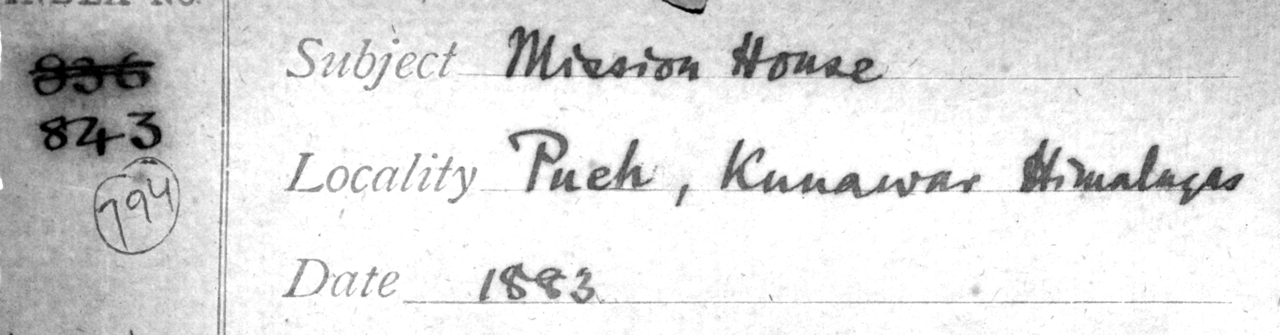 INDEX No.
836
843
794
Subject Mission House
Locality Pueh, Kunawar Himalayas
Date 1883